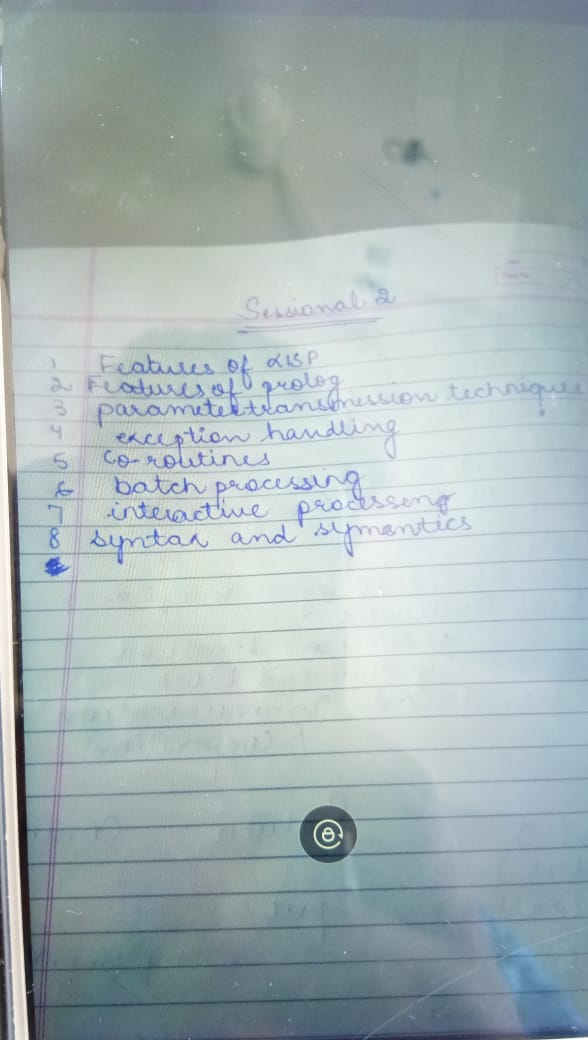 Sessional 2
1 Features of LISP
2 Features of prolog
3 parameter transmission techniques
4 exception handling
5 co-routines
6 batch processing
7 interactive processeng
8 syntax and symantics